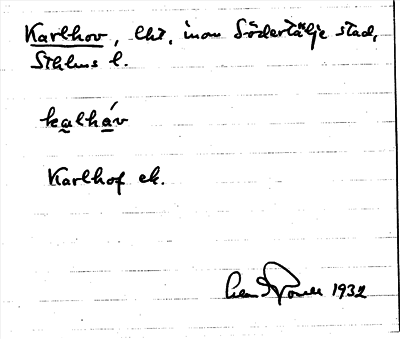 Karlhov, lht, inom Södertälje stad,
Sthlms l.
kalháv
Karlhof ek.
1932